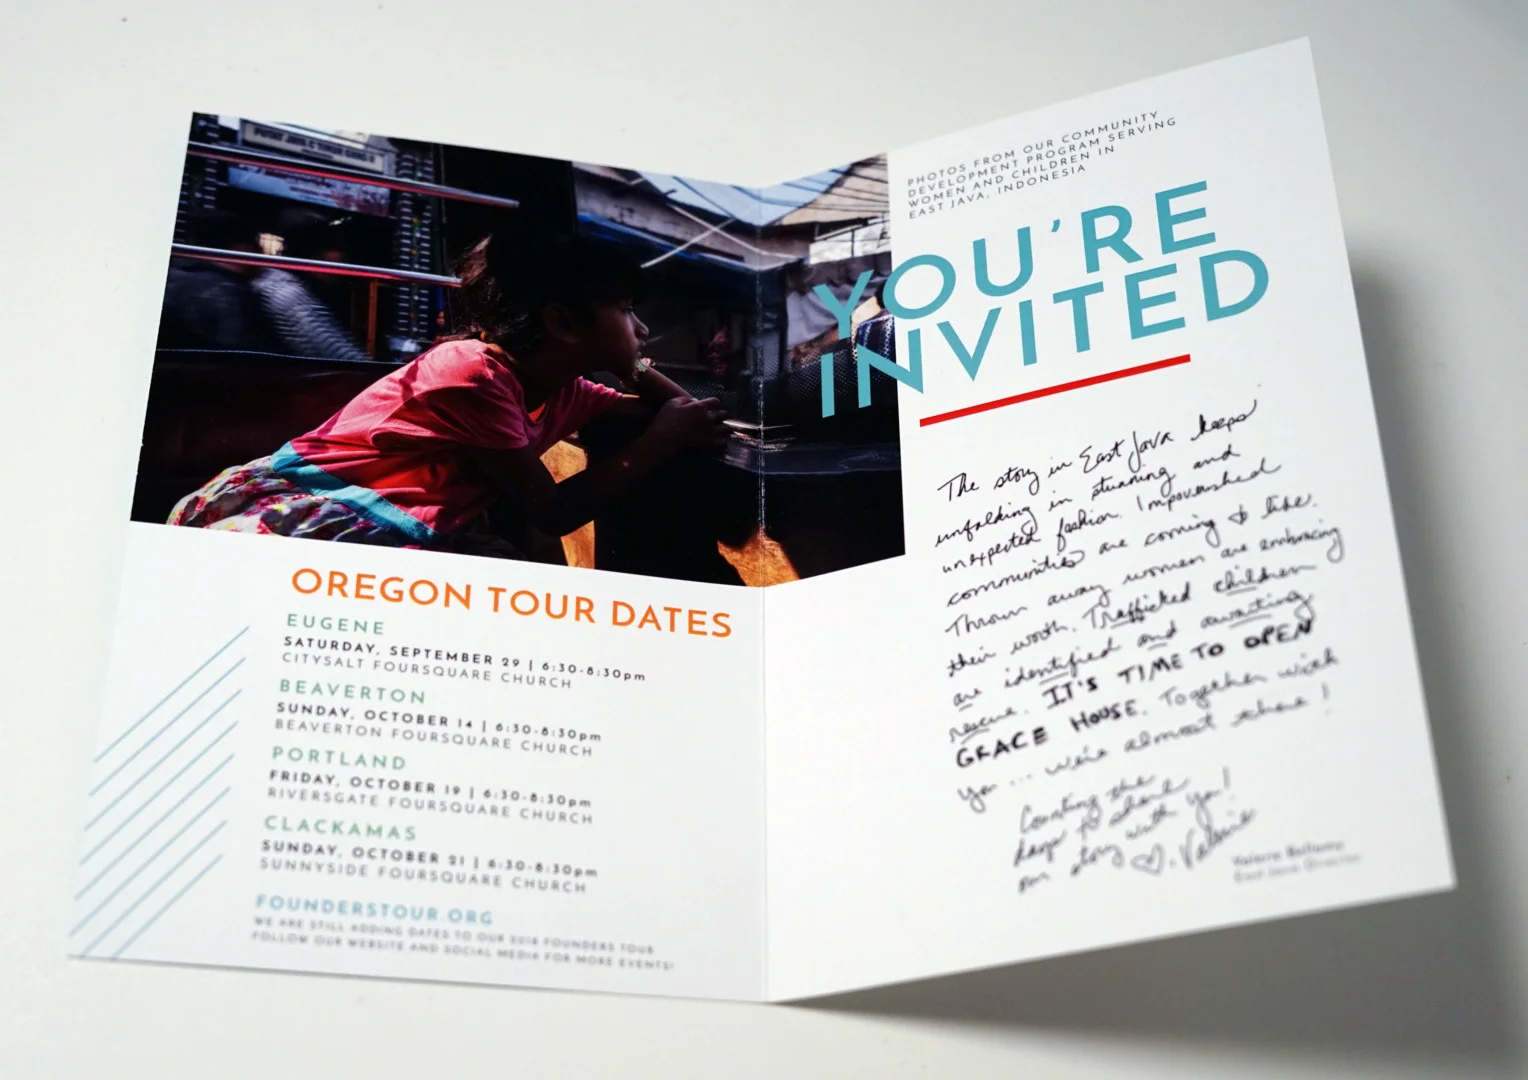 OREGON TOUR DATES
EUGENE
SATURDAY, SEPTEMBER 29 | 6:30-8:30pm
CITYSALT FOURSQUARE CHURCH
BEAVERTON
SUNDAY, OCTOBER 14 | 6:30-8:30pm
BEAVERTON FOURSQUARE CHURCH
PORTLAND
FRIDAY, OCTOBER 19 | 6:30-8:30pm
RIVERSGATE FOURSQUARE CHURCH
CLACKAMAS
SUNDAY, OCTOBER 21 | 6:30-8:30pm
SUNNYSIDE FOURSQUARE CHURCH
FOUNDERSTOUR.ORG
WE ARE STILL ADDING DATES TO OUR 2018 FOUNDERS TOUR
FOLLOW OUR WEBSITE AND SOCIAL MEDIA FOR MORE EVENTS!
PHOTOS FROM OUR COMMUNITY
DEVELOPMENT PROGRAM SERVING
WOMEN AND CHILDREN IN
EAST JAVA, INDONESIA
YOU'RE
INVITED
The story in East Java keeps
unfolding in stunning and
unexpected fashion. Impoverished
communities are coming to life.
Thrown away women are embracing
their worth. Trafficked children
are identified and awaiting
rescue. IT'S TIME TO OPEN
GRACE HOUSE. Together with
you... we're almost there!
Counting the
days to share
our story with you!
♡. Valerie
Valerie Bellamy
East Java Director